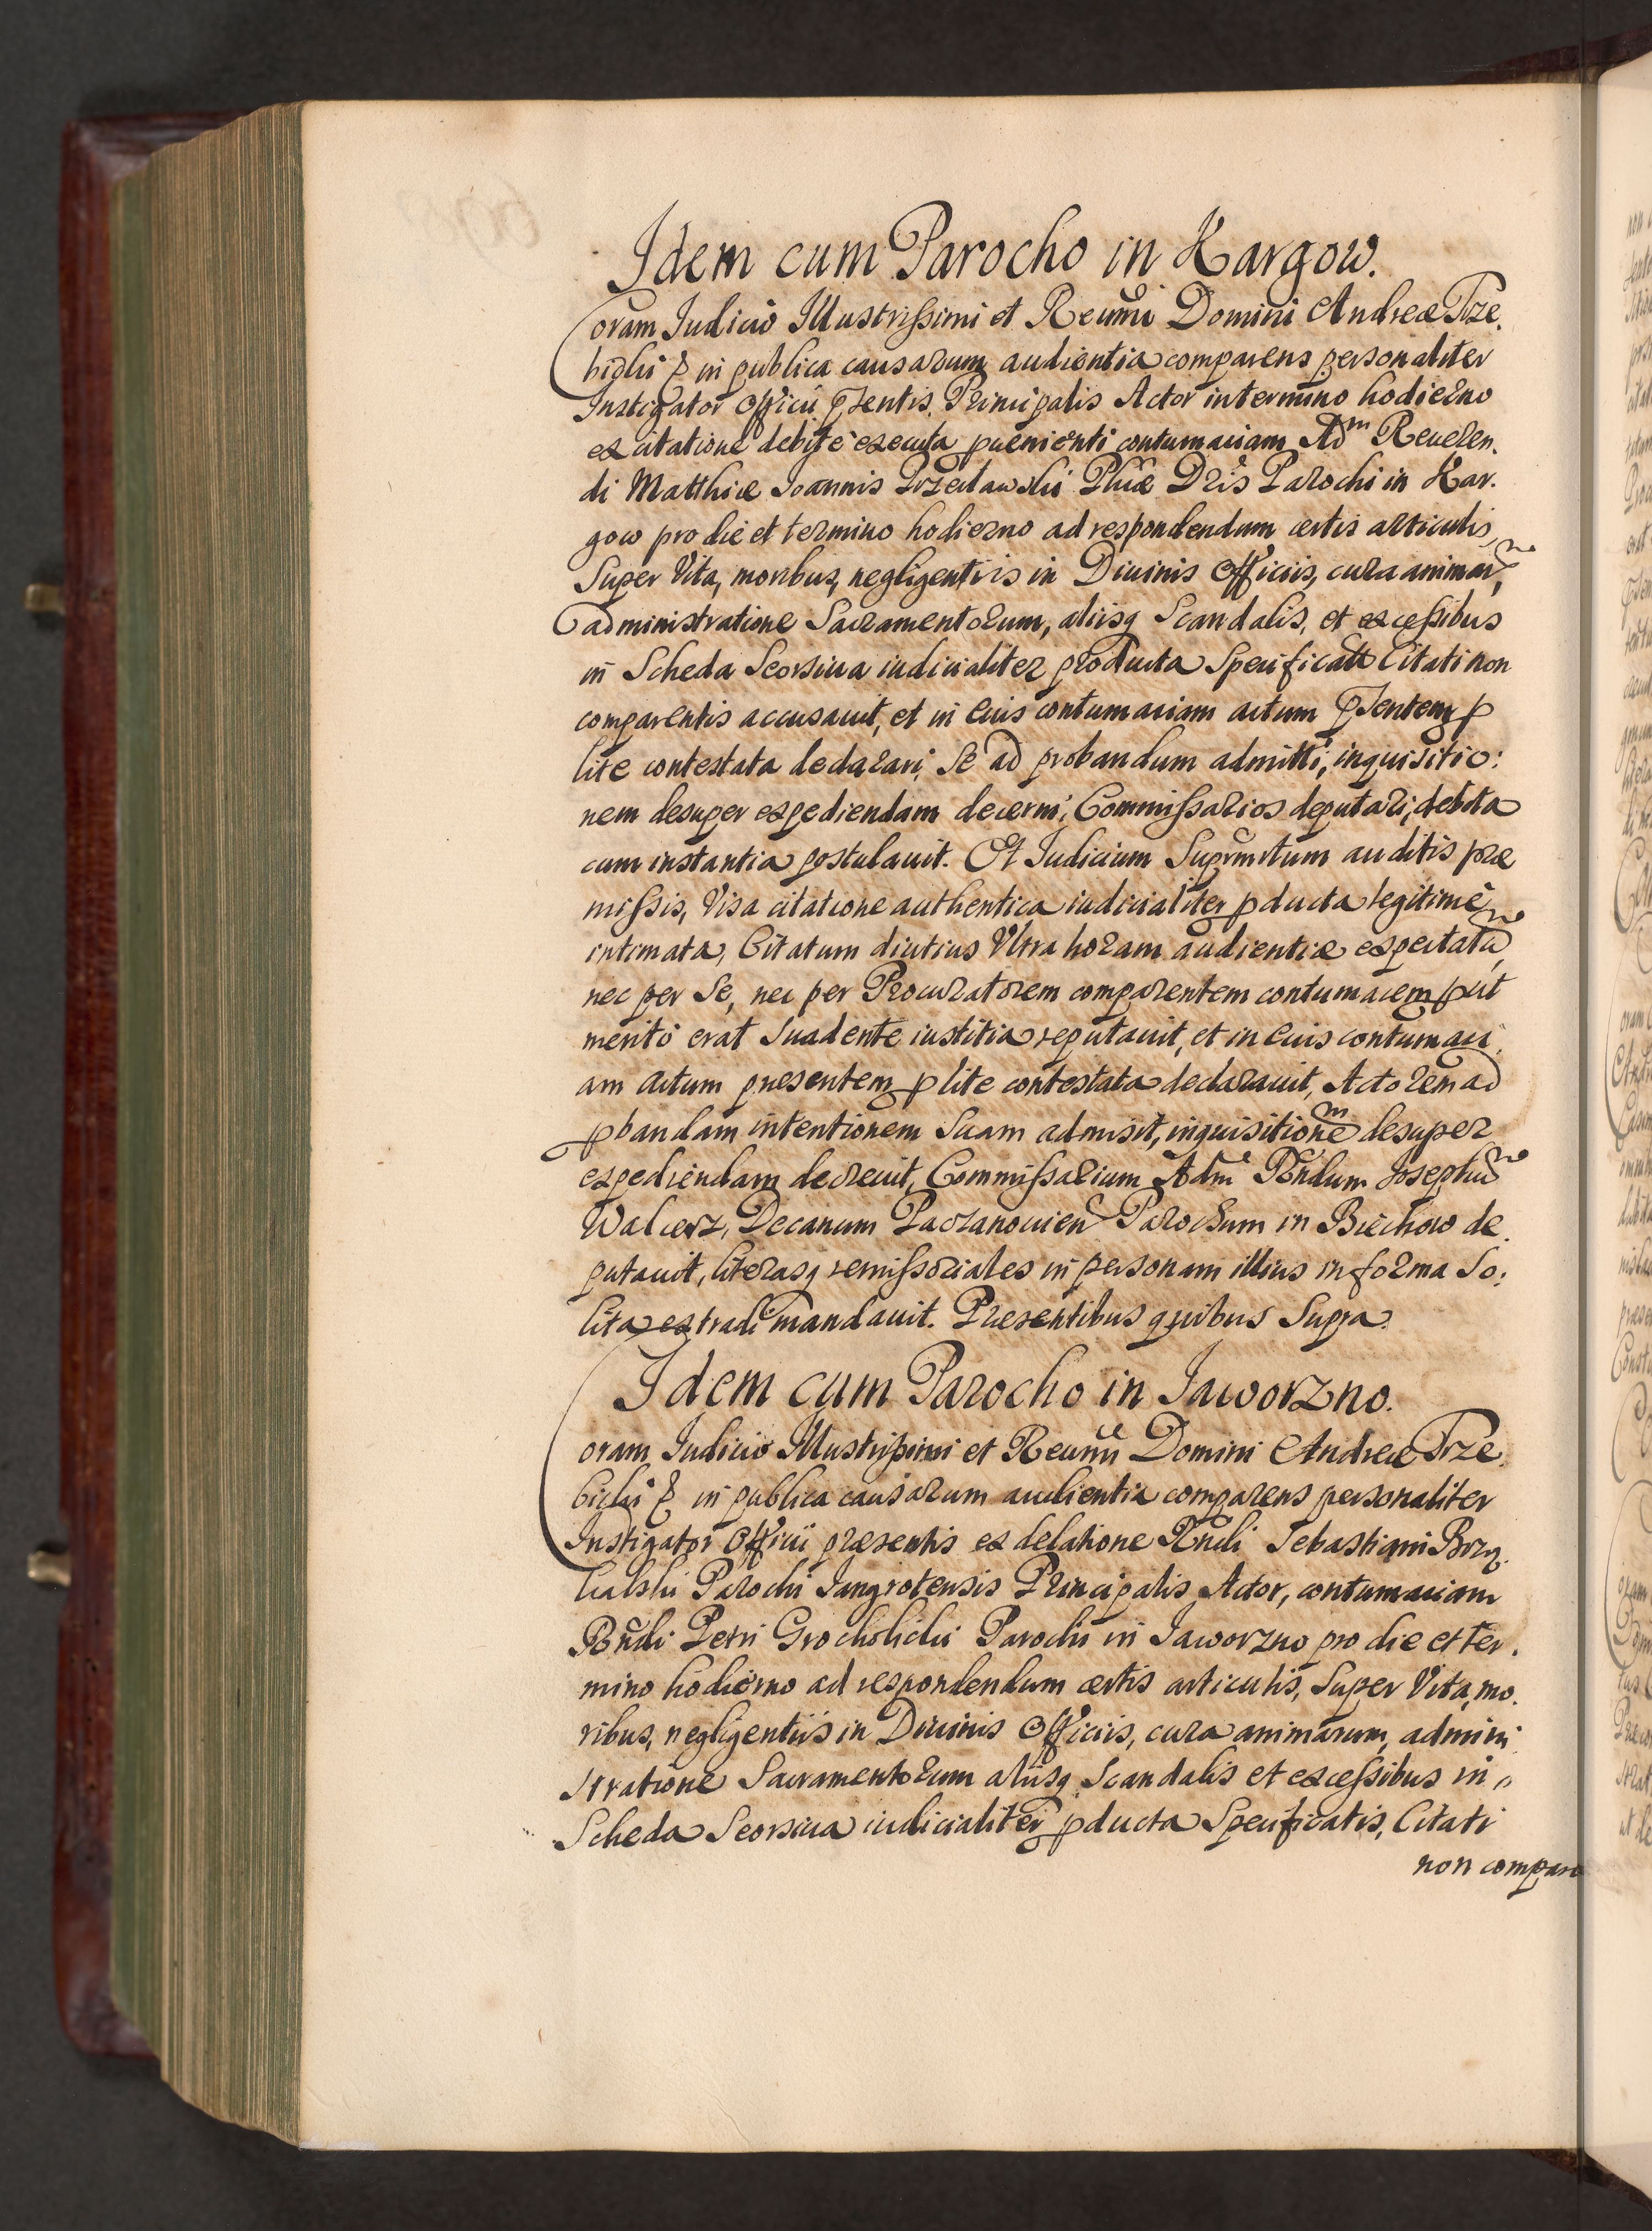 Idem cum Parocho in Kargow.
Coram Iudicio Illustrissimi et Reumi Domini Andreæ Trze.
bicki & in publica causarum audientia comparens personaliter
Instigator Officii pntis Principalis Actor in termino hodierno
ex citatione debite executa pueniénti contumaciam Adm Reueren.
di Matthiæ Joannis Phiæ Dris Parochi in Kar.
gow pro die et termino hodierno ad respondendum certis articulis,
Super Vita, moribus, negligentiis in Diuinis Officiis, cura animarū,
administratione Sacramentorum, aliisq Scandalis, et excessibus
in Scheda Seorsiua iudicialiter producta Specificatis Citati non
comparentis accusauit, et in eius contumaciam actum pntem p
lite contestata declarari, Se ad probandum admitti, inquisitio:
nem desuper expediendam decerni, Commissarios deputari, debita
cum instantia postulauit. Et Iudicium Supranotatum auditis præ
missis, Visa citatione authentica iudicialiter pducta legitimè
intimata, Citatum diutius Vltra horam audientiæ expectatū,
nec per Se, nec per Procuratorem comparentem contumacem put
meritò erat Suadente iustitia reputauit, et in eius contumaci.
am actum præsentem p lite contestata declarauit, Actorem ad
pbandam intentionem Suam admisit, inquisitionem desuper
expediendam decreuit, Commissarium Adm Rndum Josephū
Walcerz, Decanum Paczanouien Parochum in Biechow de.
putauit, literasq remissoriales in personam illius in forma So:
lita extradi mandauit. Præsentibus quibus Supra.
Idem cum Parocho in Jaworzno.
Coram Iudicio Illustrissimi et Reumi Domini Andreæ Trze.
bicki & in publica causarum audientia comparens personaliter
Instigator Officii præsentis ex delatione Rndi Sebastiani
Parochi Jangrotensis Principalis Actor, contumaciam
Rndi Petri Grocholicki Parochi in Jaworzno pro die et ter.
mino hodierno ad respondendum certis articulis, Super Vita, mo.
ribus, negligentiis in Diuinis Officiis, cura animarum, admini
stratione Sacramentorum aliisq Scandalis et excessibus in
Scheda Seorsiua iudicialiter pducta Specificatis, Citati
non compare